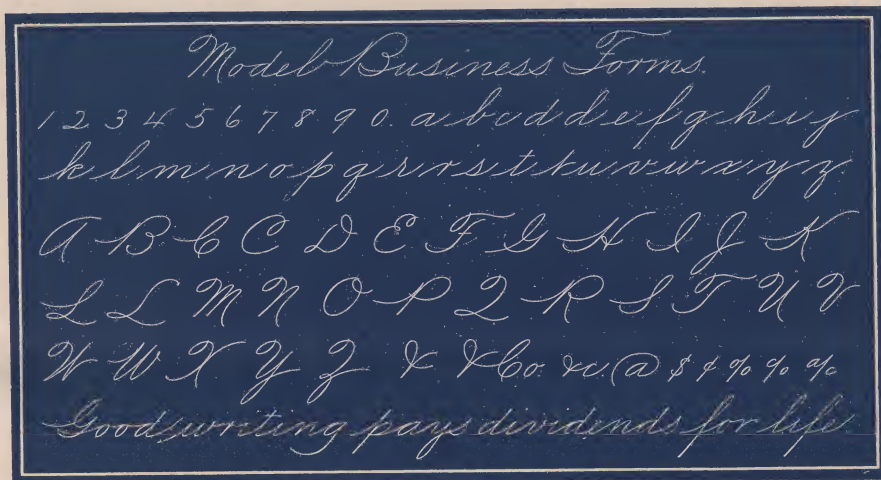 Model Business Forms.
1 2 3 4 5 6 7 8 9 0. a b c d d e f g h i j
k l m n o p q r r s t t u v w x y z.
A B C C D E F G H I J K
L L M N O P Q R S T U V
W W X Y Z & &Co. &c. @ $ ¢ % % %
Good writing pays dividends for life